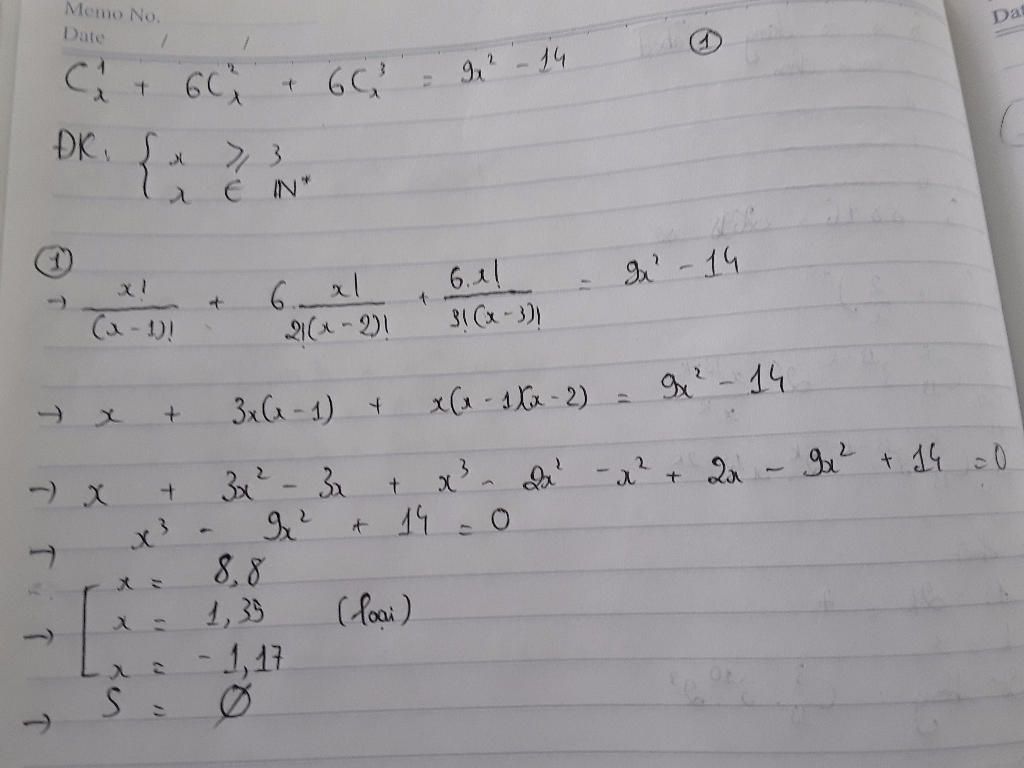 Memo No.
Date / /
Dat
C¹ₓ + 6C²ₓ + 6C³ₓ = 9x² - 14 ①
ĐK: { x ≥ 3
x ∈ ℕ*
①
→ x!/(x-1)! + 6.x!/2!(x-2)! + 6.x!/3!(x-3)! = 9x² - 14
→ x + 3x(x-1) + x(x-1)(x-2) = 9x² - 14
→ x + 3x² - 3x + x³ - 2x² - x² + 2x - 9x² + 14 = 0
→ x³ - 9x² + 14 = 0
→ [ x = 8,8
x = 1,35 (loại)
x = -1,17
→ S = ∅